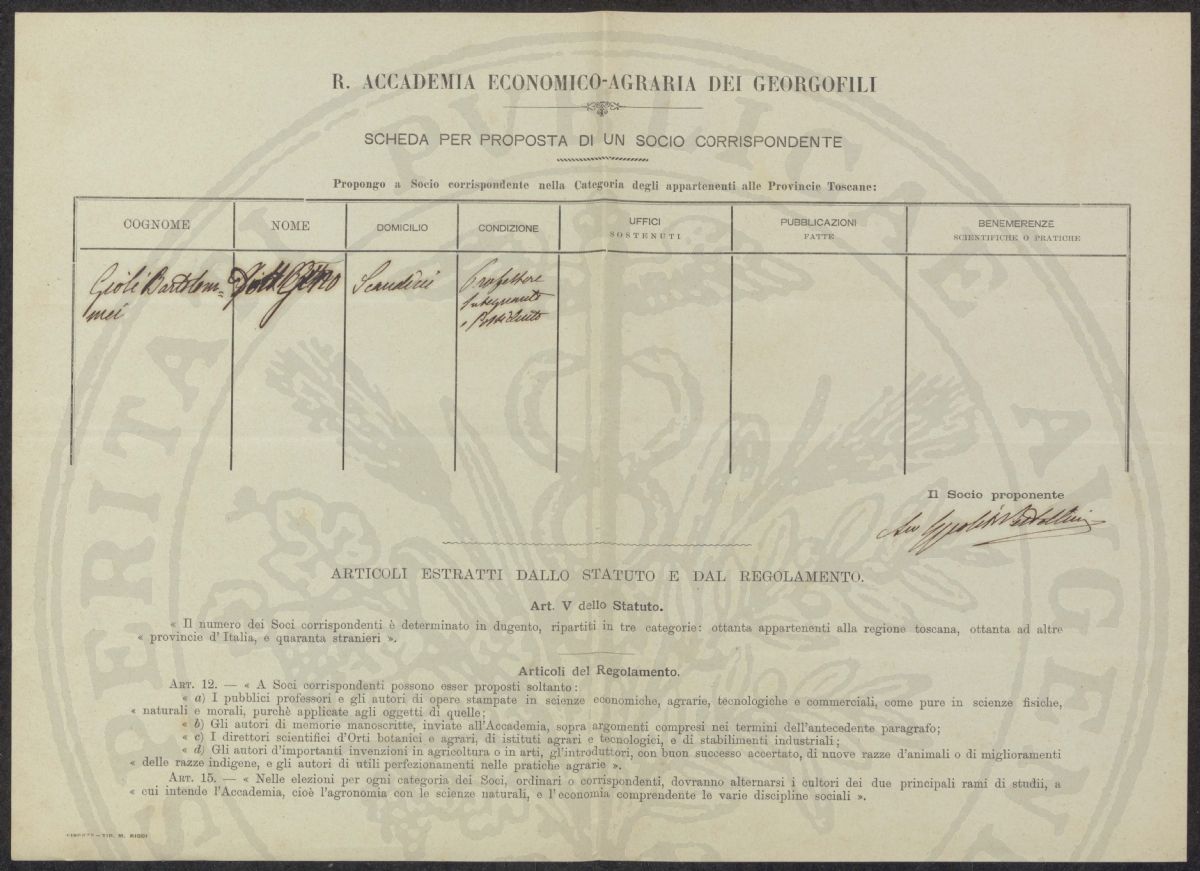 R. ACCADEMIA ECONOMICO-AGRARIA DEI GEORGOFILI
SCHEDA PER PROPOSTA DI UN SOCIO CORRISPONDENTE
Propongo a Socio corrispondente nella Categoria degli appartenenti alle Provincie Toscane:
COGNOME NOME DOMICILIO CONDIZIONE UFFICI SOSTENUTI PUBBLICAZIONI FATTE BENEMERENZE SCIENTIFICHE O PRATICHE
Gioli Bartolom= Dott Gino Scandicci Professore
mei Insegnante
e Possidente
Il Socio proponente
ARTICOLI ESTRATTI DALLO STATUTO E DAL REGOLAMENTO.
Art. V dello Statuto.
« Il numero dei Soci corrispondenti è determinato in dugento, ripartiti in tre categorie: ottanta appartenenti alla regione toscana, ottanta ad altre
« provincie d'Italia, e quaranta stranieri ».
Articoli del Regolamento.
ART. 12. — « A Soci corrispondenti possono esser proposti soltanto:
« a) I pubblici professori e gli autori di opere stampate in scienze economiche, agrarie, tecnologiche e commerciali, come pure in scienze fisiche,
« naturali e morali, purchè applicate agli oggetti di quelle;
« b) Gli autori di memorie manoscritte, inviate all'Accademia, sopra argomenti compresi nei termini dell'antecedente paragrafo;
« c) I direttori scientifici d'Orti botanici e agrari, di istituti agrari e tecnologici, e di stabilimenti industriali;
« d) Gli autori d'importanti invenzioni in agricoltura o in arti, gl'introduttori, con buon successo accertato, di nuove razze d'animali o di miglioramenti
« delle razze indigene, e gli autori di utili perfezionamenti nelle pratiche agrarie ».
ART. 15. — « Nelle elezioni per ogni categoria dei Soci, ordinari o corrispondenti, dovranno alternarsi i cultori dei due principali rami di studii, a
« cui intende l'Accademia, cioè l'agronomia con le scienze naturali, e l'economia comprendente le varie discipline sociali ».
FIRENZE — TIP. M. RICCI
PROSPERITATI PVBLICAE AVGENDAE